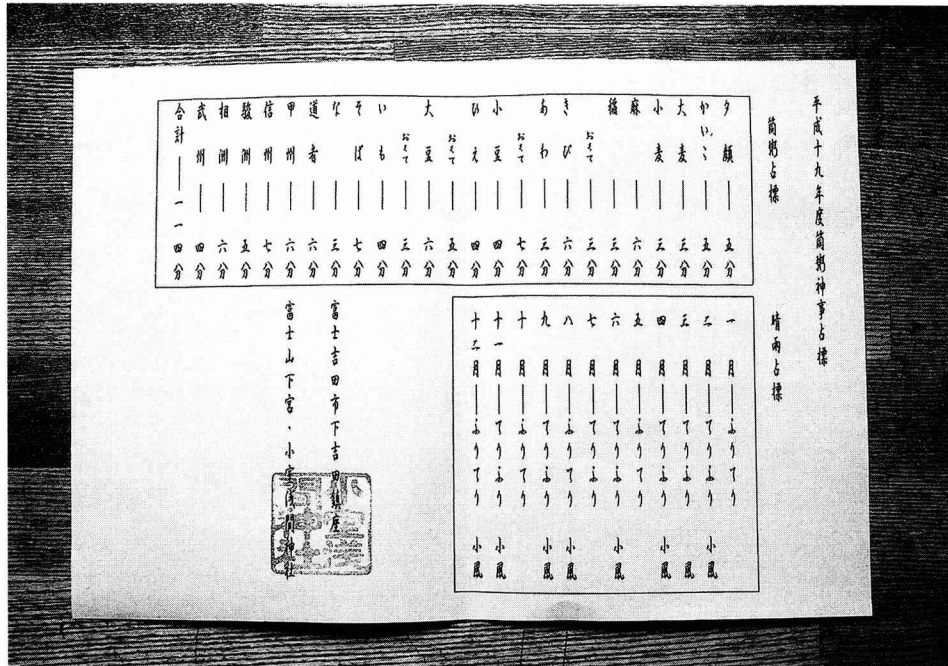 平成十九年度筒粥神事占標
筒粥占標
夕顔――五分
かいこ――五分
大麦――三分
小麦――三分
麻――六分
稲――三分
おくて――三分
きび――六分
あわ――三分
おくて――七分
小豆――四分
ひえ――四分
おくて――五分
大豆――六分
おくて――三分
いも――四分
そば――七分
な――三分
道者――六分
甲州――六分
信州――七分
駿州――五分
相州――六分
武州――四分
合計――一一四分
晴雨占標
一月――ふりてり
二月――てりふり 小風
三月――てりふり 小風
四月――てりふり 小風
五月――ふりてり
六月――てりふり 小風
七月――てりふり
八月――ふりてり 小風
九月――てりふり 小風
十月――ふりてり
十一月――てりふり 小風
十二月――ふりてり 小風
富士吉田市下吉田鎮座
富士山下宮・小室浅間神社